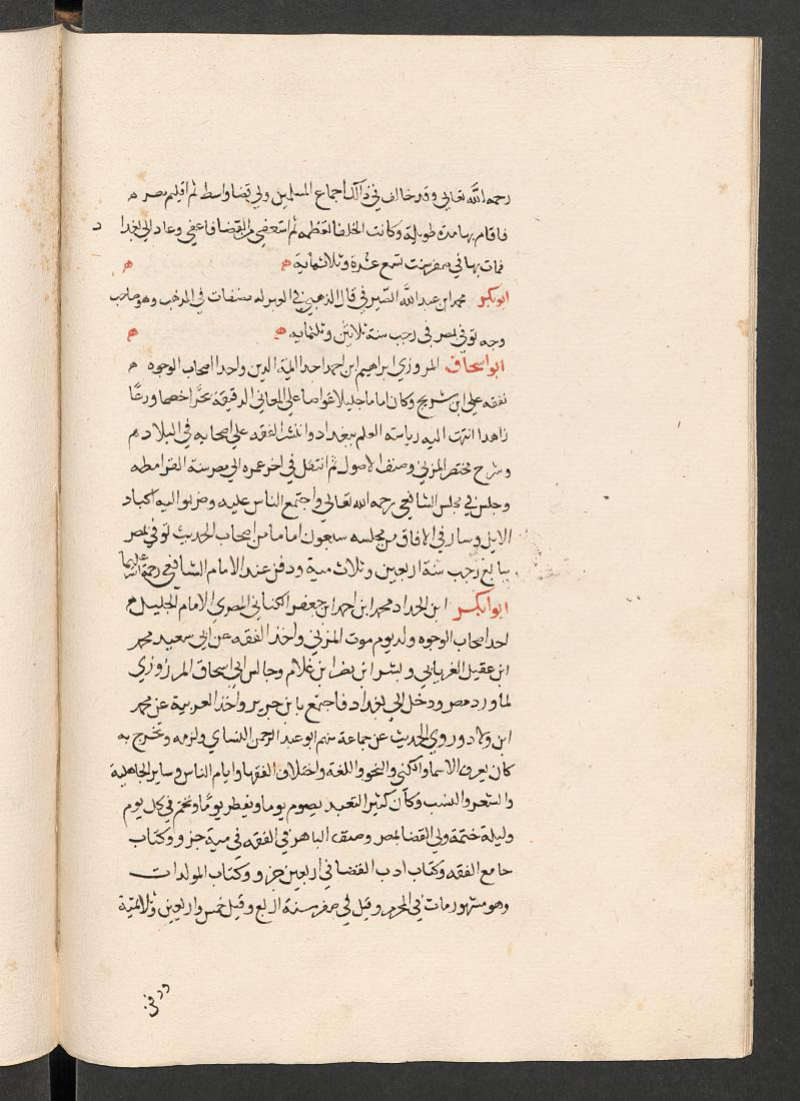 رحمه الله تعالى وقد خالف في ذالك اجماع المسلمين ولي قضا واسط ثم اقليم مصر ه
فاقام بها مدة طويلة وكانت الخلفا تعظمه ثم استعفى من القضا فاعفي وعاد الى بغدا د
فمات بها في صفر سنت تسع عشرة وثلاثماية ه ه
ابوبكر محمد ابن عبد الله الصيرفي قال الذهبي في العبر له مصنفات في المذهب وهو صاحب
وجه توفي بمصر في رجب سنة ثلاثين وثلثمايه ه ه
ابواسحاق المروزي ابراهيم ابن احمد احد ايمة الدين واحد اصحاب الوجوه ه
تفقه على ابن شريح وكان اماما جليلا غواصا على المعاني الدقيقة بحرًا خضما ورعًا
زاهدا انتهت اليه رياسة العلم ببغداد وانتشر الفقه على اصحابه في البلاد م
وشرح مختصر المزني وصنف الاصول ثم انتقل في اخر عمره الى مصر سنة القرامطه
وجلس في مجلس الشافعي رحمه الله تعالى واجتمع الناس عليه وضربوا اليه اكباد
الابل وسار في الافاق من مجلسه سبعون اماما من اصحاب الحديث توفي بمصر
سابع رجب سنة اربعين وثلاث مية ودفن عند الامام الشافعي رحمة الله عليهما
ابوابكر ابن الحداد محمد ابن احمد ابن جعفر الكناني المصري الامام الجليل م
احد اصحاب الوجوه ولد يوم موت المزني واخذ الفقه عن ابي سعيد محمد
ابن عقيل الفريابي وبشر ابن نصر ابن غلام وجالس ابي اسحاق المروزي
لما ورد مصر ودخل الى بغداد فاجتمع بابن جرير واخذ العربية عن محمد
ابن ولاد وروي الحديث عن جماعة منهم ابو عبد الرحمن النساي ولزمه وتخرج به
كان يعرف الاسما والكنى والنحو واللغة واختلاف الفقها وايام الناس وساير الجاهلية
والشعر والنسب وكان كثير التعبد يصوم يوما ويفطر يومًا ويختم في كل يوم
وليلة ختمة ولي القضا بمصر وصنف الباهر في الفقه في مية جزو وكتاب
جامع الفقه وكتاب ادب القضا في اربعين جزو وكتاب المولدات
وهو مشهور مات في المحرم وقيل في صفر سنة اربع وقيل خمس واربعين وثلاثمية
ودفن